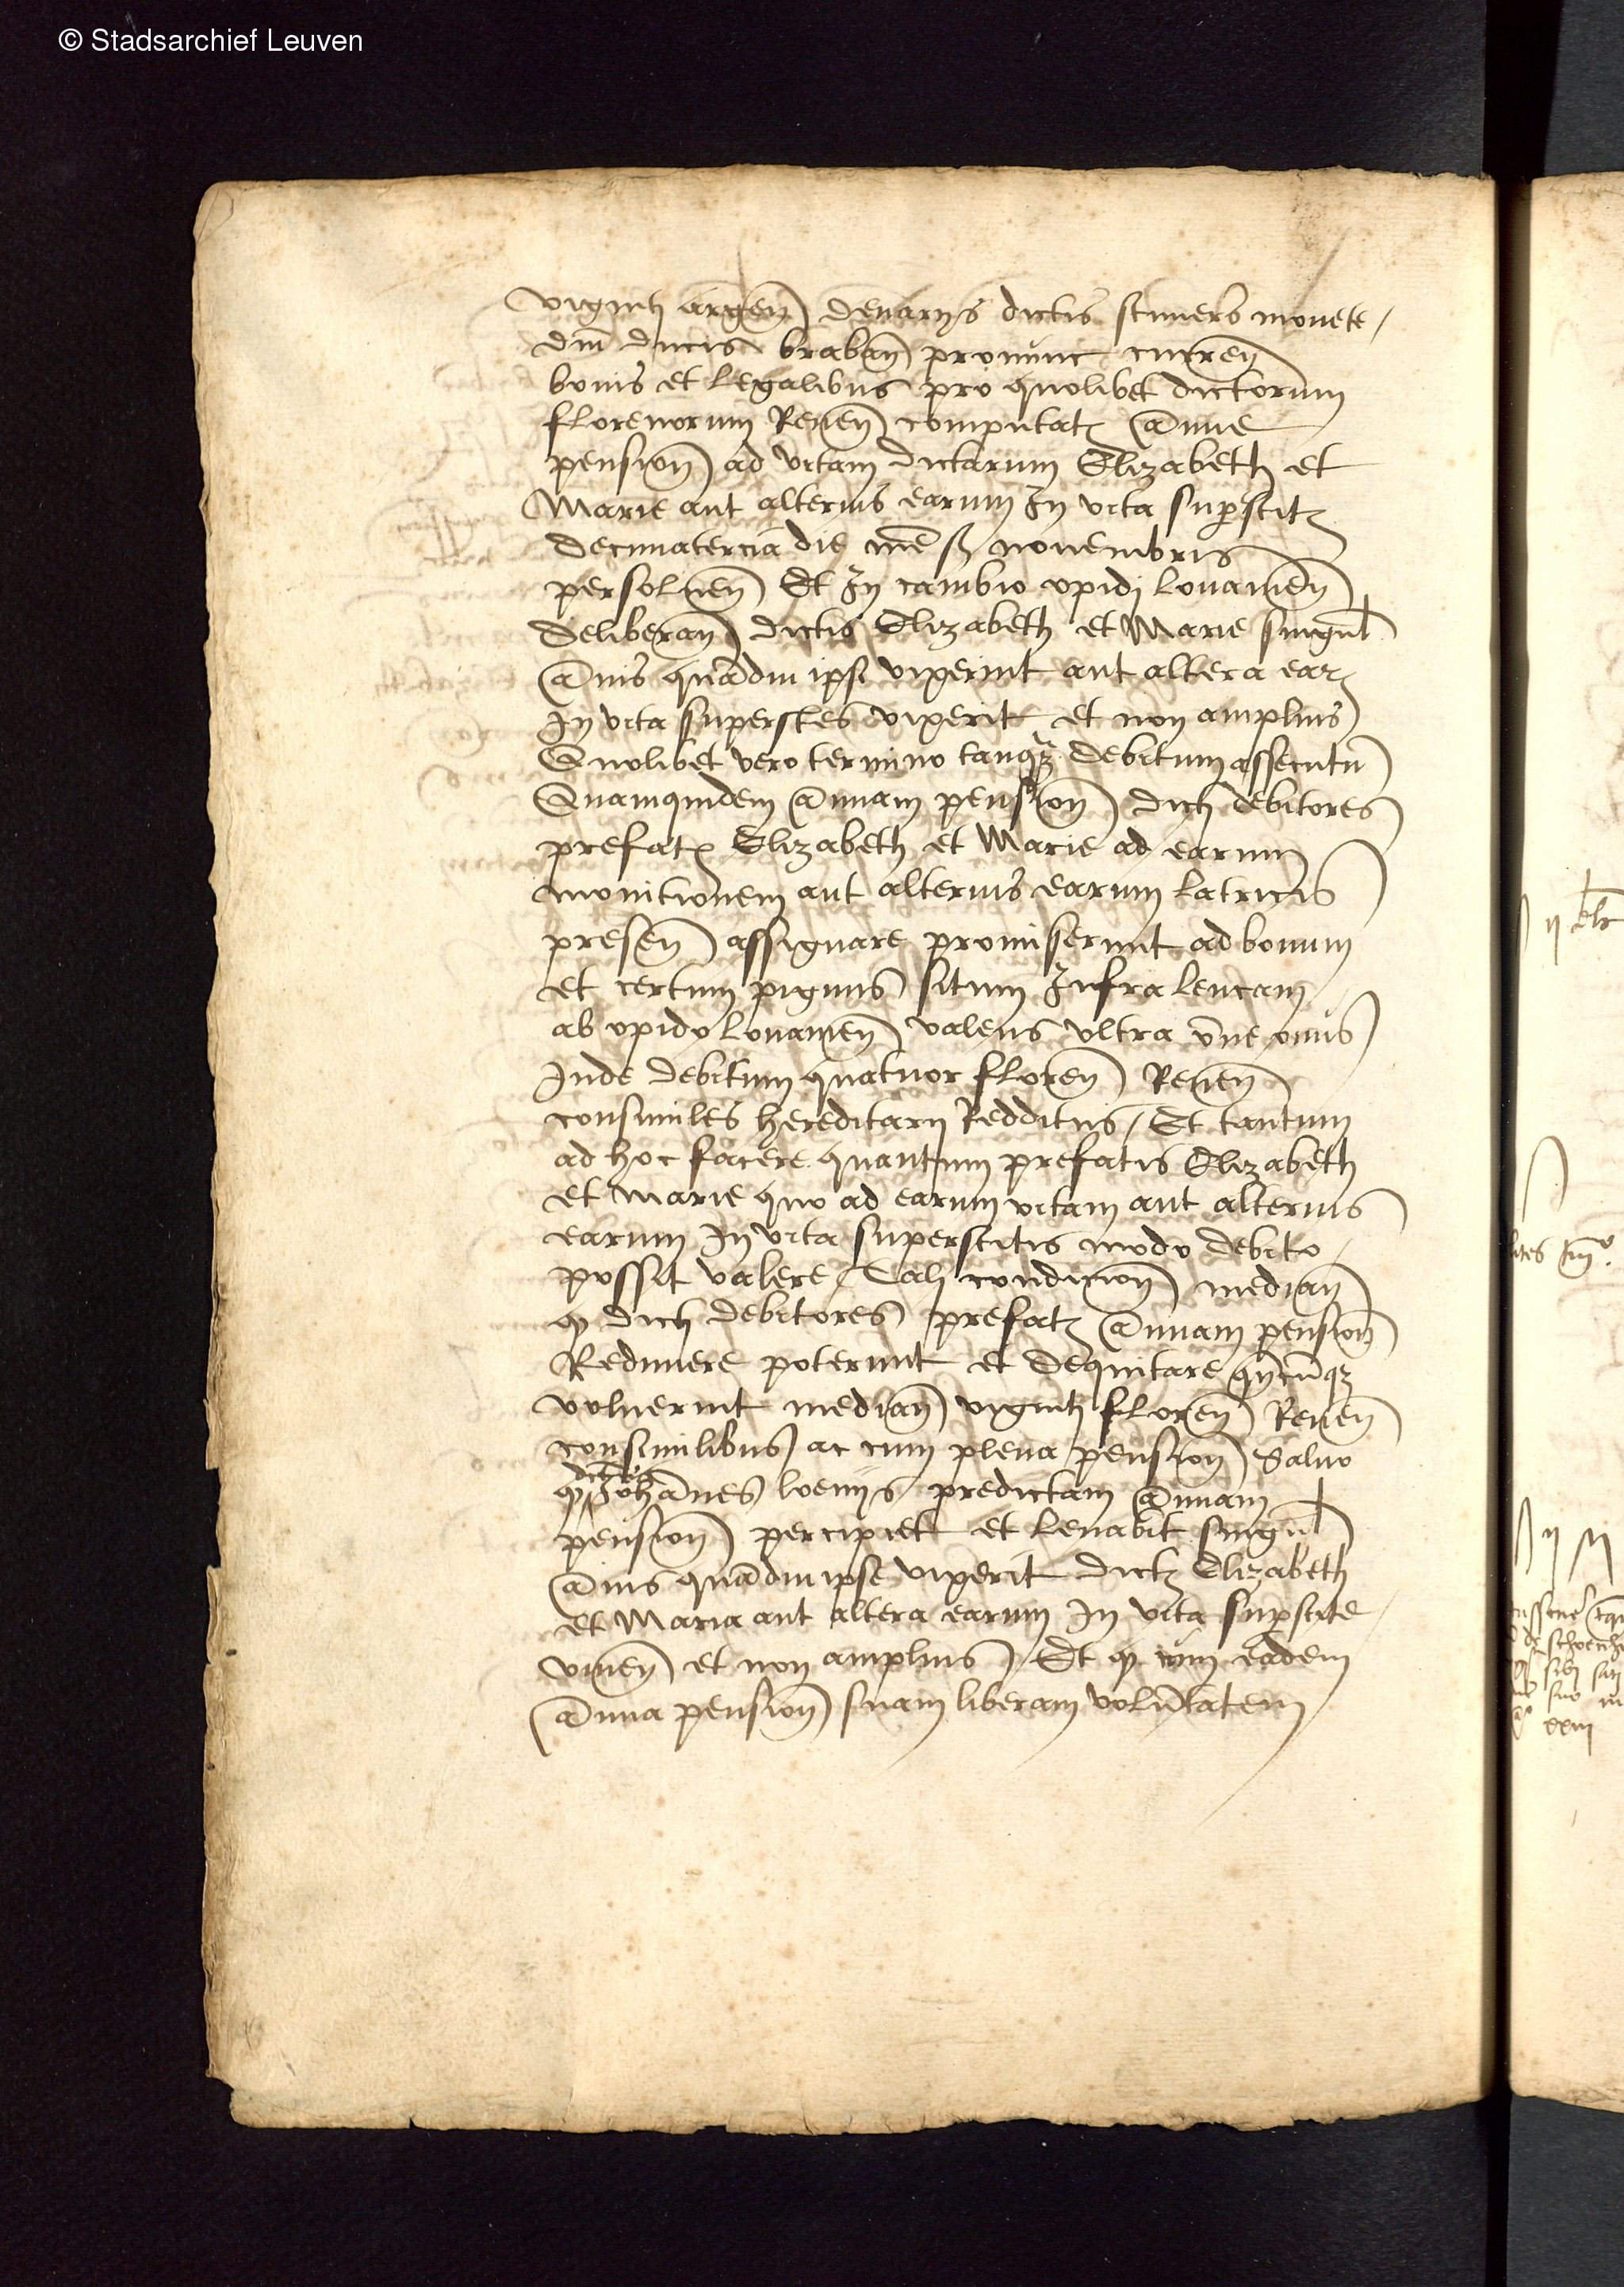 © Stadsarchief Leuven
viginti argen denarijs dictis stuvers monete
dni ducis braban pronunc curren
bonis et legalibus pro quolibet dictorum
florenorum Renen computat annue
pension ad vitam dictarum Elizabeth et
Marie aut alterius earum In vita supstit
decimatercia die mens novembris
persolven Et In cambio opidi lovanien
deliberan dictis Elizabeth et Marie singul
annis quadiu ipse vixerint aut altera ear
In vita superstes vixerit et non amplius
Quolibet vero termino tanq debitum assecutu
Quamquidem annuam pension dicti debitores
prefat Elizabeth et Marie ad earum
monitionem aut alterius earum latricis
presen assignare promiserunt ad bonum
et certum pignus situm Infra leucam
ab opido lovanien valens ultra omne onus
Inde debitum quatuor floren Renen
consimiles hereditarij Redditus / Et tantum
ad hoc facere quantum prefatis Elizabeth
et Marie quo ad earum vitam aut alterius
earum In vita superstitis modo debito
possit valere / Tali condicion median
q dicti debitores prefat annuam pension
Redimere poterunt et dequitare qncuq
voluerint median viginti floren Renen
consimilibus ac cum plena pension Salvo
q Johannes loenijs predictam annuam
pension percipiet et levabit singul
annis quadiu ipse vixerit dict Elizabeth
et Maria aut altera earum In vita supstite
viven et non amplius Et q cum eadem
annua pension suam liberam volutatem